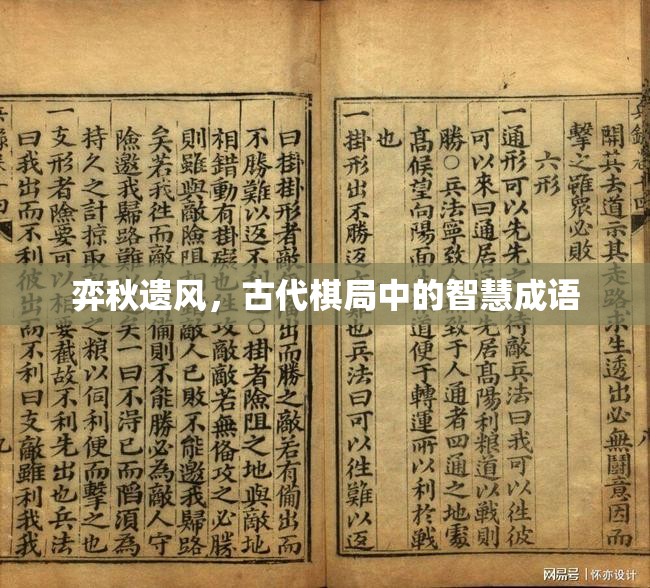 弈秋遗风，古代棋局中的智慧成语
開其去道示其走路求生透出必無鬭意因而
擊之雖眾必敗
六形
一通形可以先之待敵兵法曰我可以往彼
可以來曰通居先居高陽利粮道以戰則
勝○兵法寧致人致於人通者四通之地處
高候望向陽而道便于轉運所以利於戰
也
一掛形出不勝返也兵法曰可以往難以返
曰掛掛形者敵出而勝之敵若有備出而
不勝難以返不○掛者險阻之地與敵
相錯動有掛礙也攻敵若無備攻之必勝
則雖與敵險阻敵人已敗不能邀我歸路
矣若我往而敵則不能勝必為敵人守
險邀我歸路難矣一曰不得已而陷須為
持久之計掠取之粮以伺利便而擊之也
一支形者險要可以相要截故不利先出也兵法
曰我出而不利彼出而不利曰支敵雖利我我
网易号 | 怀亦设计